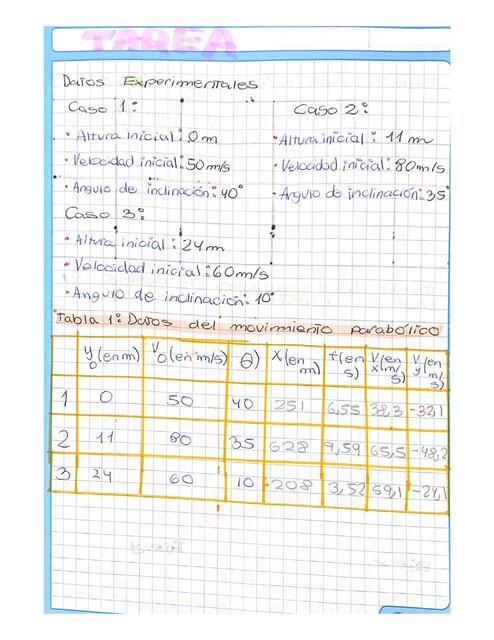 TAREA
Datos Experimentales
Caso 1:
• Altura inicial: 0m
• Velocidad inicial: 50m/s
• Angulo de inclinación: 40°
Caso 2:
• Altura inicial: 11m
• Velocidad inicial: 80m/s
Angulo de inclinación: 35°
Caso 3:
• Altura inicial: 24m
• Velocidad inicial: 60m/s
• Angulo de inclinación: 10°
Tabla 1: Datos del movimiento parabólico
y0 (en m) V0 (en m/s) θ) X (en m) t (en s) V (en x (m/s) V (en y (m/s)
1 0 50 40 251 6,55 38,3 -33,1
2 11 80 35 628 9,59 65,5 -48,2
3 24 60 10 208 3,52 59,1 -24,1